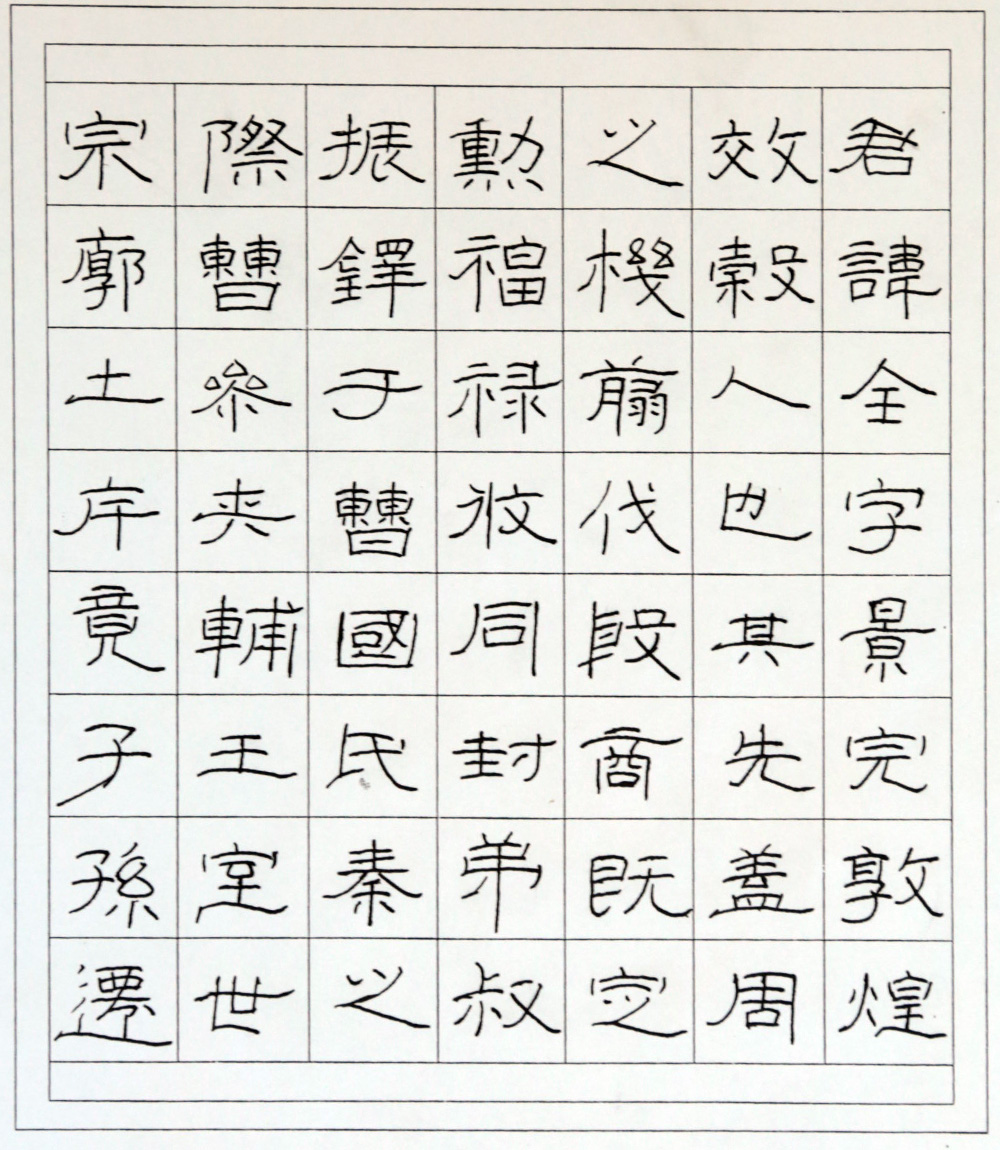 君諱全字景完敦煌
效穀人也其先盖周
之機翦伐殷商既定
勲福禄攸同封弟叔
振鐸于曹國氏秦之
際曹參夾輔王室世
宗廓土斥竟子孫遷